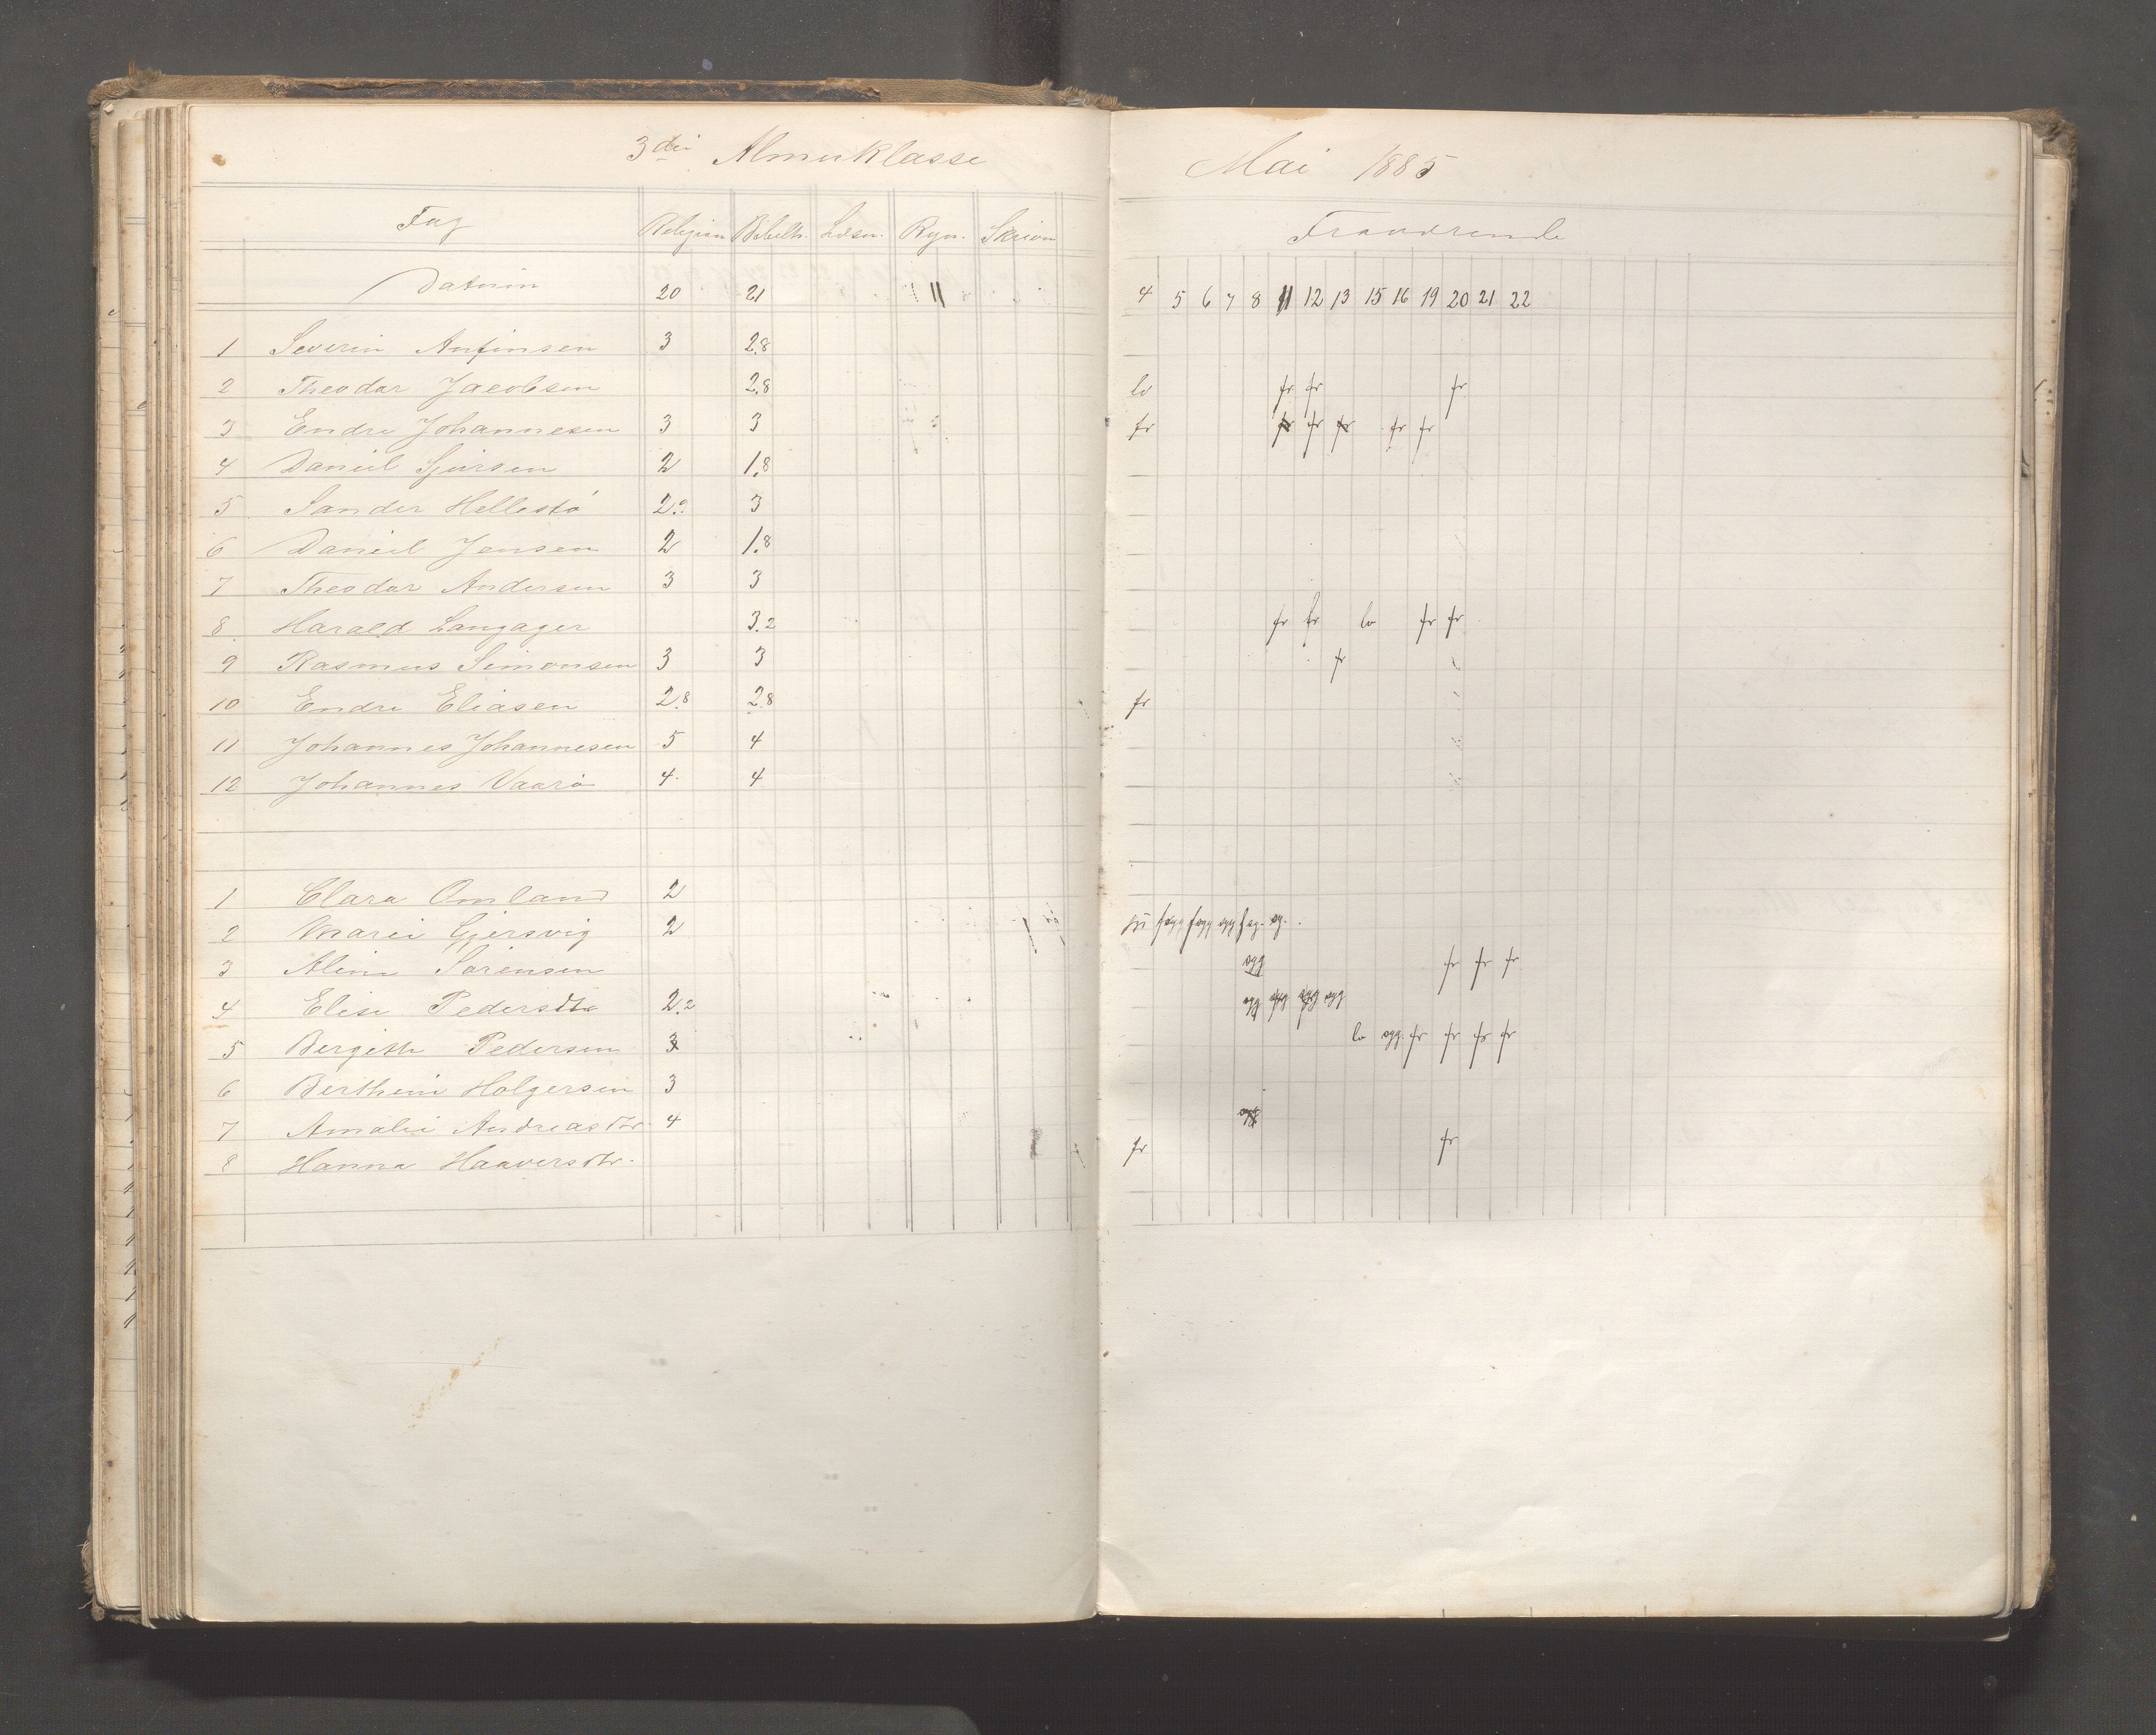 3die Almuklasse
Fag Religion Bibelh. Læsn. Regn. Skrivn
Datum 20 21 11
1 Severin Anfinsen 3 2.8
2 Theodor Jacobsen 2.8
3 Endre Johannesen 3 3
4 Daniel Sjursen 2 1.8
5 Sander Hellestø 2.2 3
6 Daniel Jensen 2 1.8
7 Theodor Andersen 3 3
8 Harald Langager 3.2
9 Rasmus Simonsen 3 3
10 Endre Eliasen 2.8 2.8
11 Johannes Johannesen 5 4
12 Johannes Vaarø 4 4
1 Clara Omland 2
2 Marie Gjersvig 2
3 Aline Sørensen
4 Elise Pedersdtr 2.2
5 Bergith Pedersen 3
6 Berthine Holgersen 3
7 Amalie Andreasdtr 4
8 Hanna Haaversdtr.
Mai 1885
Fraværende
4 5 6 7 8 11 12 13 15 16 19 20 21 22
lo fr fr fr
fr fr fr fr fr fr
fr fr lo fr fr
fr
fr
ogg fr fr fr
lo ogg. fr fr fr fr
fr fr